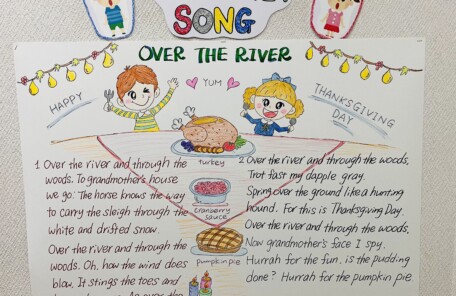 SONG
OVER THE RIVER
HAPPY
YUM
THANKSGIVING
DAY
turkey
cranberry
sauce
pumpkin pie
1 Over the river and through the
woods. To grandmother's house
we go. The horse knows the way
to carry the sleigh through the
white and drifted snow.
Over the river and through the
woods. Oh, how the wind does
blow. It stings the toes and
2 Over the river and through the woods.
Trot fast my dapple gray.
Spring over the ground like a hunting
hound. For this is Thanksgiving Day.
Over the river and through the woods.
Now grandmother's face I spy.
Hurrah for the fun. is the pudding
done? Hurrah for the pumpkin pie